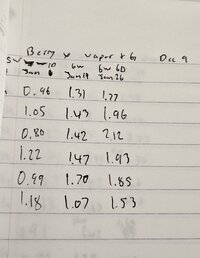 Berry vapor + 6 Dec 9
5w 10 6w 6w 6D
Jan 6 Jan 19 Jan 26
0.96 1.31 1.77
1.05 1.43 1.96
0.80 1.42 2.12
1.22 1.47 1.93
0.99 1.70 1.85
1.18 1.07 1.53